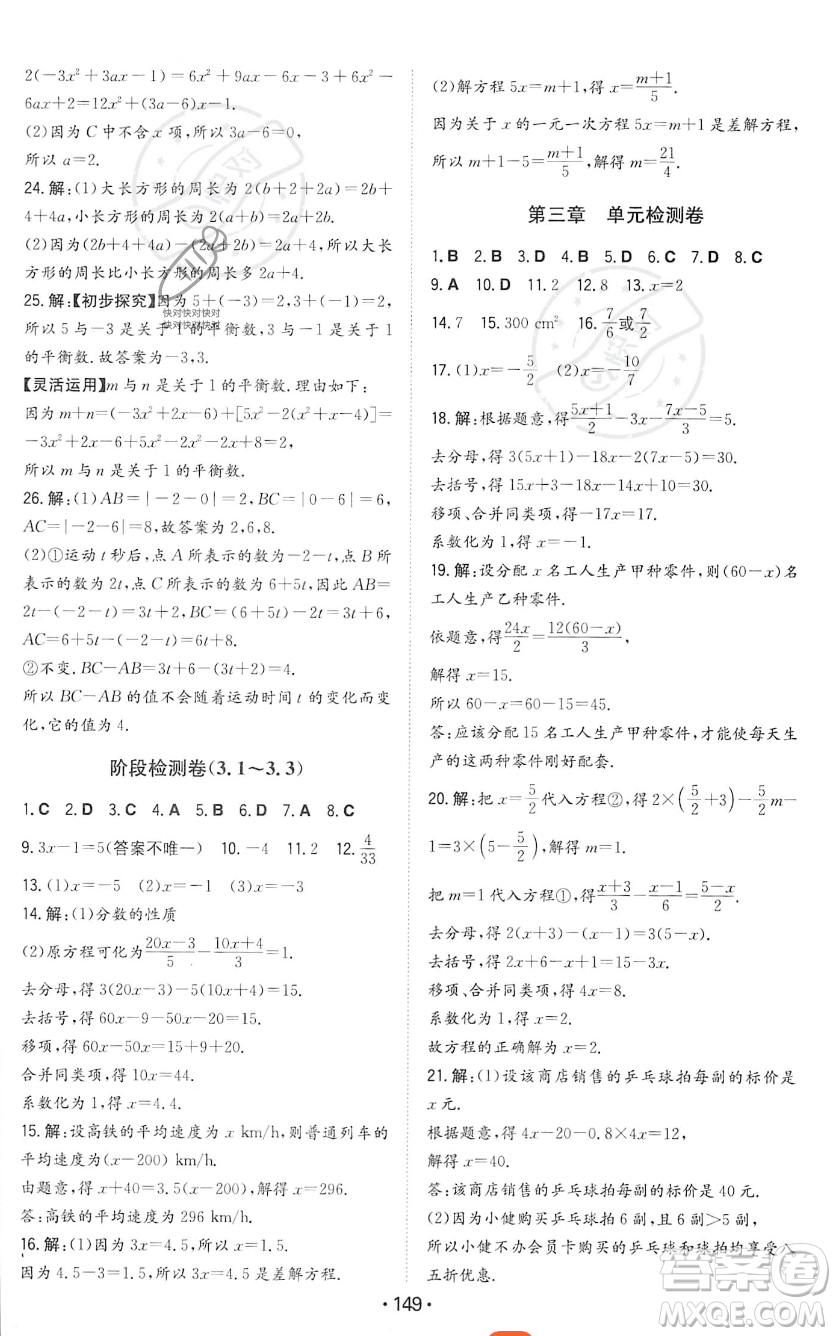 2(-3x²+3ax-1)=6x²+9ax-6x-1+6x²-
6ax+2=12x²+(3a-6)x-1.
(2)因为C中不含x项,所以3a-6=0,
所以a=2.
24.解:(1)大长方形的周长为2(b+2+2a)=2b+
4a+4,小长方形的周长为2(a+b)=2a+2b.
(2)因为(2b+4a+4)-(2a+2b)=2a+4,所以大长
方形的周长比小长方形的周长多2a+4.
25.解:【初步探究】因为5+(-3)=2,3+(-1)=2,
快对快对快对
所以5与-3是关于1的平衡数,3与-1是关于1
快对快对快对
的平衡数.故答案为-3,3.
【灵活运用】m与n是关于1的平衡数.理由如下:
因为m+n=(-3x²-2x+6)+[5x²-2(x²+x-4)]=
-3x²+2x+6+5x²-2x²-2x-4=2,
所以m与n是关于1的平衡数.
26.解:(1)AB=|-2-0|=2,BC=|0-6|=6,
AC=|-2-6|=8,故答案为2,6,8.
(2)①运动t秒后,点A所表示的数为-2-t,点B所
表示的数为2t,点C所表示的数为6+5t,因此AB=
2t-(-2-t)=3t+2,BC=6+5t-2t=3t+6.
②不变.BC-AB=3t+6-(3t+2)=4.
所以BC-AB的值不会随着运动时间t的变化而变
化,它的值为4.
阶段检测卷(3.1~3.3)
1.C 2.D 3.C 4.A 5.B 6.D 7.A 8.C
9.3x-1=5(答案不唯一) 10.-4 11.2 12.4/33
13.(1)x=-5 (2)x=-1 (3)x=1
14.解:(1)分数的性质
(2)原方程可化为(20x-3)/5-(10x+4)/3=1.
去分母,得3(20x-3)-5(10x+4)=15.
去括号,得60x-9-50x-20=15.
移项,得60x-50x=15+9+20.
合并同类项,得10x=44.
系数化为1,得x=4.4.
15.解:设高铁的平均速度为x km/h,则普通列车的
平均速度为(x-200) km/h.
由题意,得x+40=3.5(x-200),解得x=296.
答:高铁的平均速度为296 km/h.
16.解:(1)因为3x=4.5,所以x=1.5,
因为4.5-3=1.5,所以3x=4.5是差解方程.
(2)解方程5x=m+1,得x=(m+1)/5.
因为关于x的一元一次方程5x=m+1是差解方程,
所以m+1-5=(m+1)/5,解得m=21/4.
第三章 单元检测卷
1.B 2.B 3.D 4.B 5.D 6.C 7.D 8.C
9.A 10.D 11.2 12.8 13.x=2
14.7 15.300 cm² 16.7/6或7/2
17.(1)x=-5/2 (2)x=-10/7
18.解:根据题意,得(5x+1)/2-3x-(7x-5)/3=5.
去分母,得3(5x+1)-18x-2(7x-5)=30.
去括号,得15x+3-18x-14x+10=30.
移项、合并同类项,得-17x=17.
系数化为1,得x=-1.
19.解:设分配x名工人生产甲种零件,则(60-x)名
工人生产乙种零件.
依题意,得24x/2=12(60-x)/3,
解得x=15.
所以60-x=60-15=45.
答:应该分配15名工人生产甲种零件,才能使每天生
产的这两种零件刚好配套.
20.解:把x=5/2代入方程②,得2×(5/2+3)-5/2m-
1=3×(5-5/2),解得m=1.
把m=1代入方程①,得(x+3)/3-(x-1)/6=(5-x)/2.
去分母,得2(x+3)-(x-1)=3(5-x).
去括号,得2x+6-x+1=15-3x.
移项、合并同类项,得4x=8.
系数化为1,得x=2.
故方程的正确解为x=2.
21.解:(1)设该商店销售的乒乓球拍每副的标价是
x元.
根据题意,得4x-20-0.8×4x=12,
解得x=40.
答:该商店销售的乒乓球拍每副的标价是40元.
(2)因为小健购买乒乓球拍6副,且6副>5副,
所以小健不办会员卡购买的乒乓球和球拍均享受八
五折优惠.
·149·
答案圈
MXQE.COM